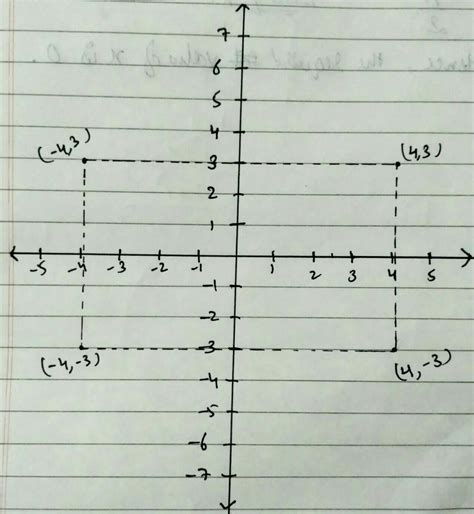 7
6
5
4
(-4,3)
(4,3)
3
2
1
-5 -4 -3 -2 -1 1 2 3 4 5
-1
-2
-3
(-4,-3)
(4,-3)
-4
-5
-6
-7